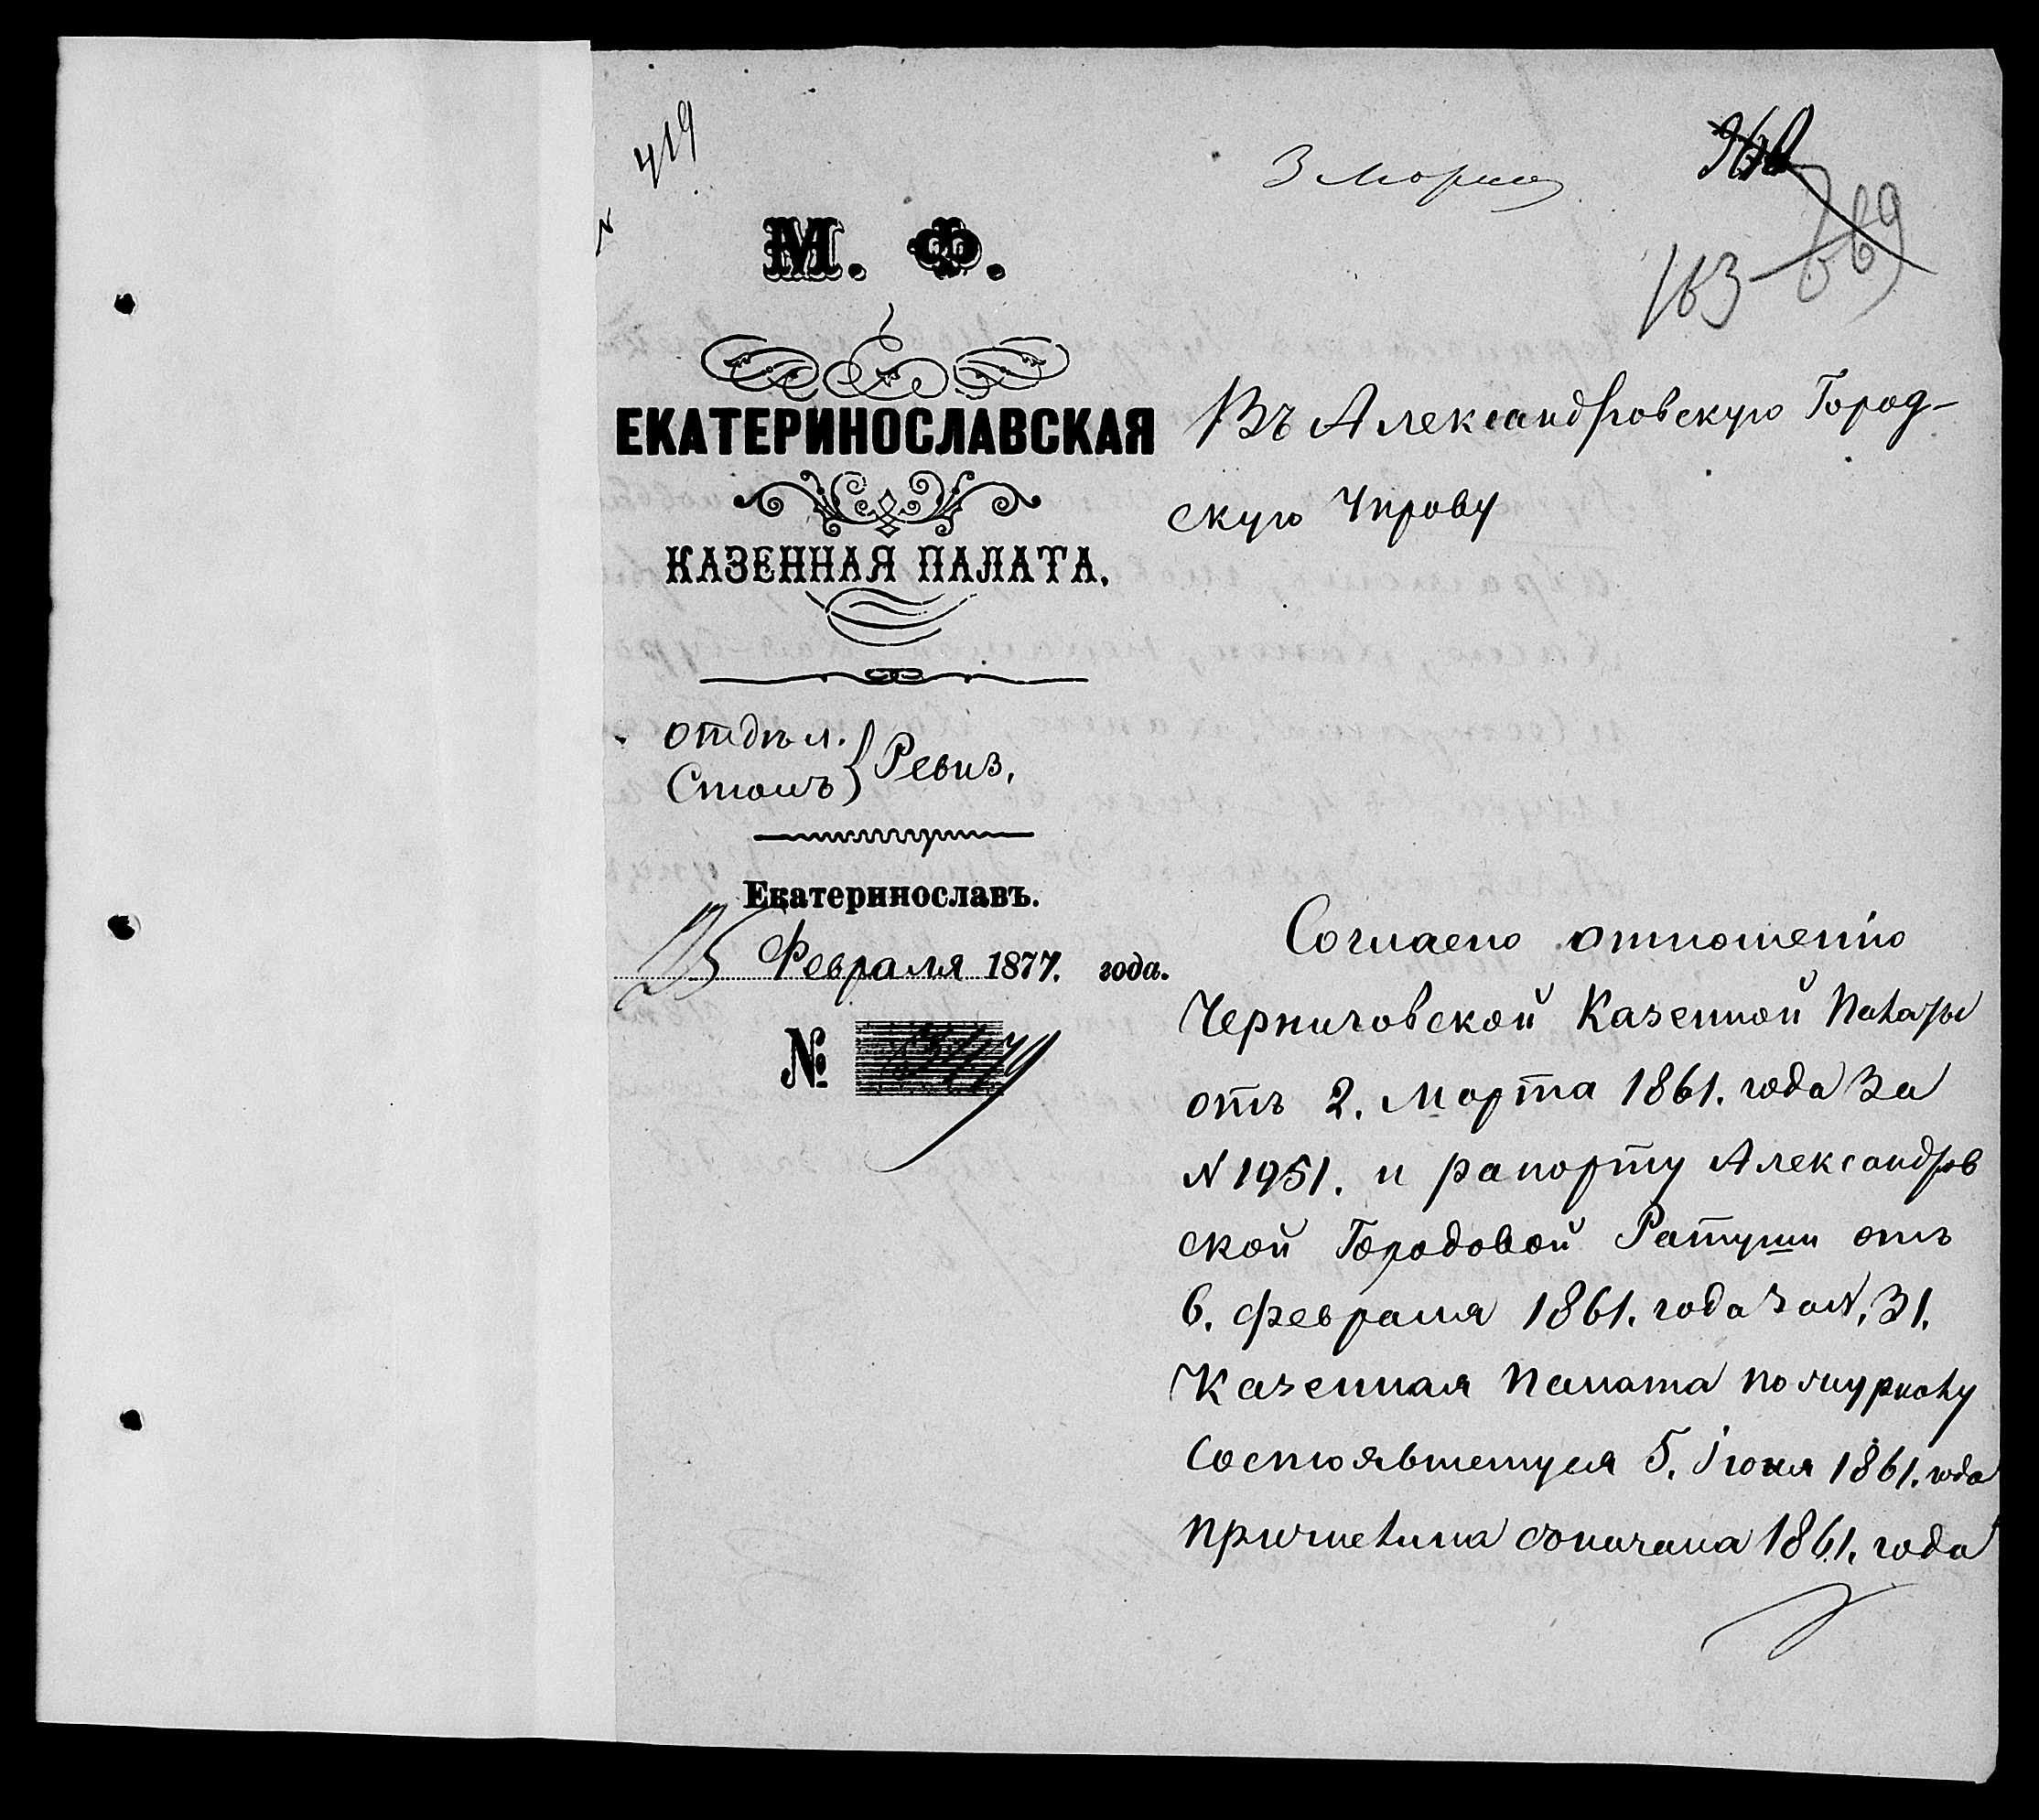 № 419
3 Марта
163
769
М. Ф.
ЕКАТЕРИНОСЛАВСКАЯ
КАЗЕННАЯ ПАЛАТА.
Отдѣл.
Столъ } Ревиз.
Екатеринославъ.
25 Февраля 1877. года.
№
Въ Александровскую Город-
скую Управу
Согласно отношенію
Черниговской Казенной Палаты
отъ 2. Марта 1861. года за
№ 1951. и рапорту Александров
ской Городовой Ратуши отъ
6. Февраля 1861. года за №, 31.
Казенная Палата по журналу
состоявшемуся 5. Іюня 1861. года
причислила съ начала 1861. года